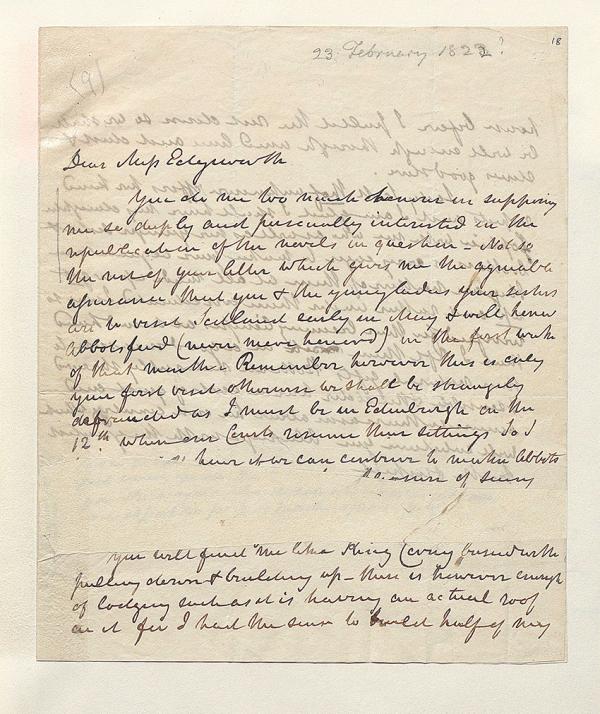 18
23 February 1822?
(9)
Dear Miss Edgeworth
You do me too much honour in supposing
me so deeply and personally interested in the
republication of the novels in question – Not so
the rest of your letter which gives me the agreeable
assurance that you & the young ladies your sisters
are to visit Scotland early in May & will honor
Abbotsford (never more honored) in the first week
of that month. Remember however this is only
your first visit otherwise we shall be strangely
defrauded as I must be in Edinburgh on the
12th when our Courts resume their sittings So I
hope we can contrive to make Abbots
sure of seeing
You will find me like King Corny busied with
pulling down & building up – there is however enough
of lodging such as it is having an actual roof
on it for I had the sense to build half of my